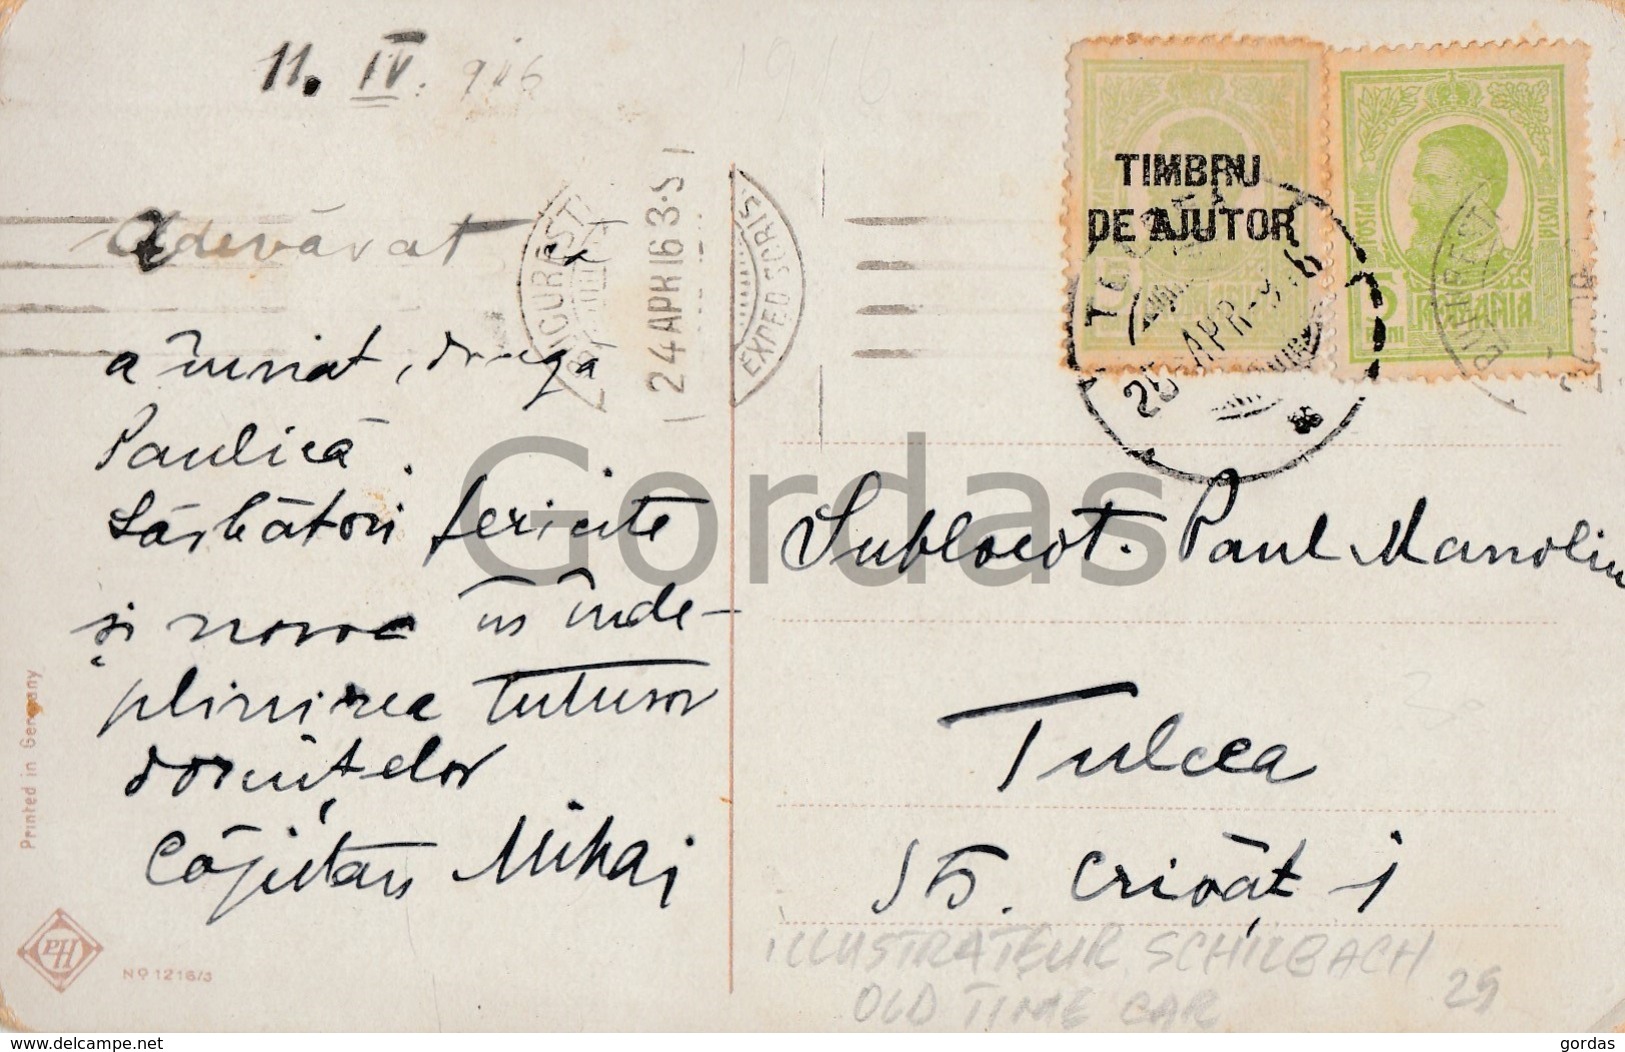 11. IV. 916
1916
Adevărat că
a înviat, dragă
Paulică.
Sărbători fericite
și noroc în înde-
plinirea tutusor
dorințelor
Căpitan Mihai
BUCUREȘTI
24 APR 16 3·S
EXPED. SCRIS.
TIMBRU
DE AJUTOR
TULCEA
25 APR 916
POSTA
POSTA
5
BANI
ROMANIA
BUCUREȘTI
Gordas
Sublocot. Paul Manoliu
Tulcea
Str. Crivăț 1
ILLUSTRATEUR SCHILBACH
OLD TIME CAR
29
Printed in Germany
PH
No 1216/3
www.delcampe.net
gordas